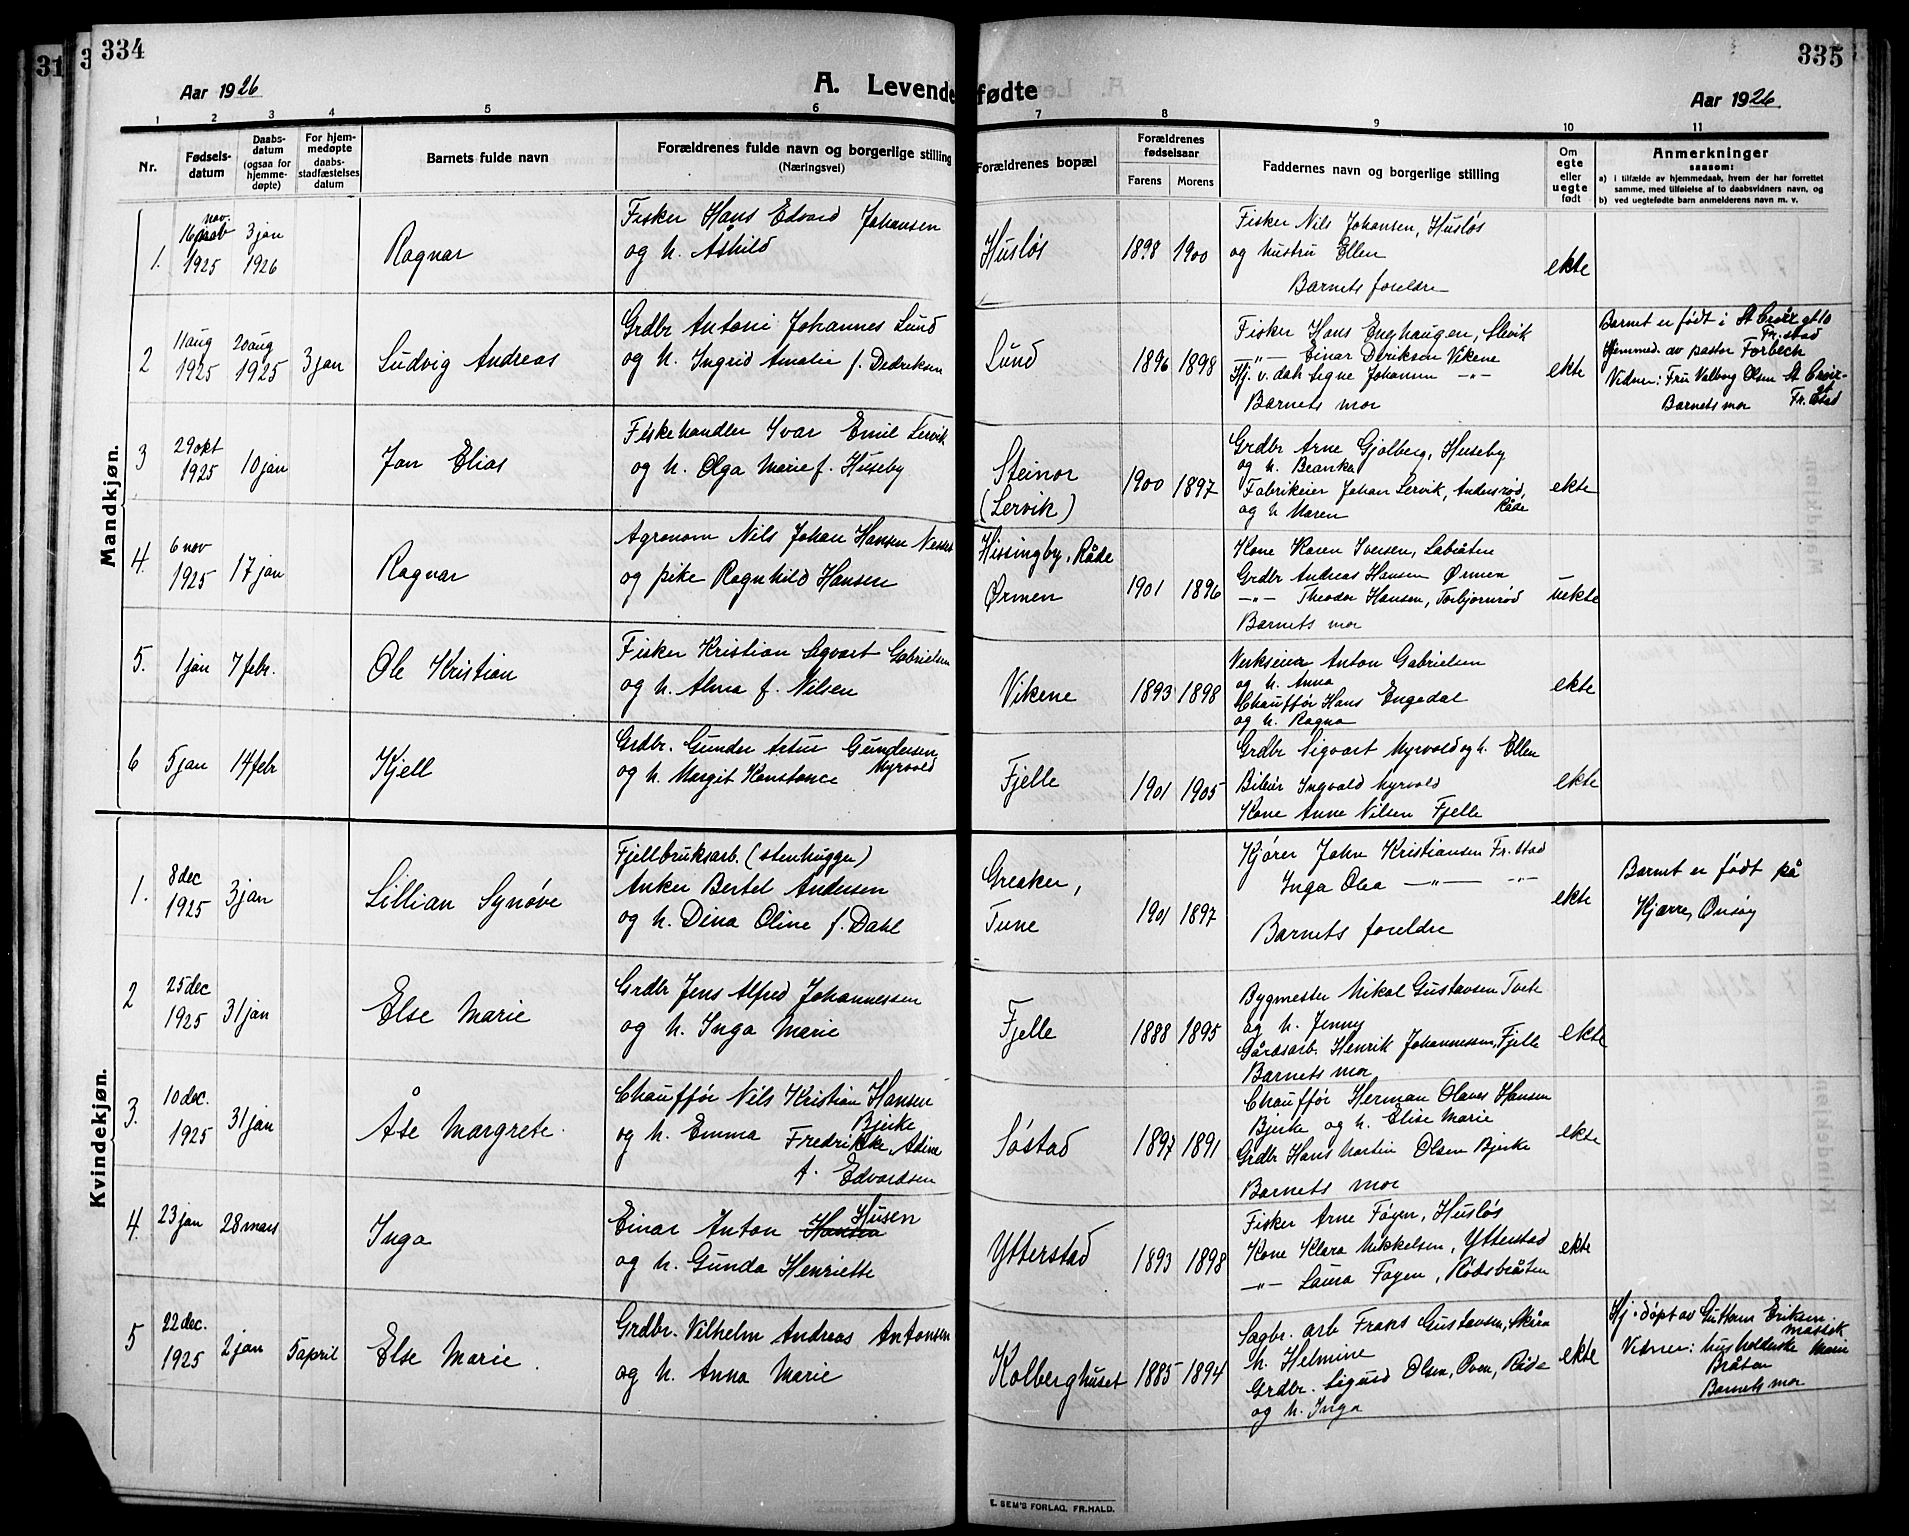 334
335
Aar 1926
A. Levende fødte
Aar 1926
1 2 3 4 5 6 7 8 9 10 11
Nr.
Fødsels-
datum
Daabs-
datum
(ogsaa for
hjemme-
døpte)
For hjem-
medøpte
daabs-
stadfæstelses
datum
Barnets fulde navn
Forældrenes fulde navn og borgerlige stilling
(Næringsvei)
Forældrenes bopæl
Forældrenes
fødselsaar
Farens Morens
Faddernes navn og borgerlige stilling
Om
egte
eller
uegte
født
Anmerkninger
saasom:
a) i tilfælde av hjemmedaab, hvem der har forrettet
samme, med tilføielse af to daabsvidners navn, og
b) ved uegtefødte barn anmelderens navn m. v.
Mandkjøn.
1. 16 nov. 1925
3 jan 1926
Ragnar
Fisker Hans Edvard Johansen
og h. Åshild
Husløs
1898 1900
Fisker Nils Johansen, Husløs
og hustru Ellen
Barnets foreldre
ekte
2 11 aug 1925
20 aug 1925
3 jan
Ludvig Andreas
Grdbr Antoni Johannes Lund
og h. Ingrid Amalie f. Dedriksen
Lund
1896 1898
Fisker Hans Enghaugen, Slevik
—"— Einar Diriksen Vikene
Hj. v. dah Signe Johansen —"—
Barnets mor
ekte
Barnet er født i St Croix gt 10
Fr. stad
Hjemmed. av pastor Forbech
Vidner: Fru Valborg Olsen St Croix-
gt
Barnets mor Fr. stad
3 29 okt 1925
10 jan
Jan Elias
Fiskehandler Ivar Emil Lervik
og h. Olga Marie f. Huseby
Steinor
(Lervik)
1900 1897
Grdbr Arne Gjølberg, Huseby
og h. Branka
Fabrikeier Johan Lervik, Andersrød,
Råde
og h Maren
ekte
4. 6 nov 1925
17 jan
Ragnar
Agronom Nils Johan Hansen
og pike Ragnhild Hansen
Hissingby, Råde
Ørmen
1901 1896
Kone Karen Iversen, Labråten
Grdbr Andreas Hansen Ørmen
—"— Theodor Hansen, Torbjørnrød
Barnets mor
uekte
5. 1 jan 7 febr.
Ole Kristian
Fisker Kristian Sigvart Gabrielsen
og h. Alma f. Nilsen
Vikene
1893 1898
Verkseier Anton Gabrielsen
og h. Anna
Chauffør Hans Engedal
og h. Ragna
ekte
6 5 jan 14 febr
Kjell
Grdbr. Gunder Artur Gundersen
Myrvold
og h. Margit Konstance
Fjelle
1901 1905
Grdbr Sigvart Myrvold og h. Ellen
Bileier Ingvald Myrvold
Kone Anne Nilsen Fjelle
ekte
Kvindekjøn.
1. 8 dec 1925
3 jan
Lillian Synøve
Fjellbruksarb. (stenhugger)
Anker Bertel Andersen
og h. Dina Oline f. Dahl
Greaker,
Tune
1901 1897
Kjører John Kristiansen Fr. stad
Inga Olea —"— —"—
Barnets foreldre
ekte
Barnet er født på
Kjærre, Onsøy
2 25 dec 1925
31 jan
Else Marie
Grdbr Jens Alfred Johannessen
og h. Inga Marie
Fjelle
1888 1895
Bygmester Nikal Gustavsen Tvete
og h. Jenny
Gårdsarb. Henrik Johannessen, Fjelle
Barnets mor
ekte
3. 10 dec. 1925
31 jan
Åse Margrete.
Chauffør Nils Kristian Hansen
Bjerke
og h. Emma Fredrikke Adine
f. Edvardsen
Søstad
1897 1891
Chauffør Herman Olaves Hansen
Bjerke og h. Elise Marie
Grdbr Hans Martin Olsen Bjerke
Barnets mor
ekte
4. 23 jan 28 mars
Inga
Einar Anton Hansen Husen
og h. Gunda Henriette
Ytterstad
1893 1898
Fisker Arne Føyen, Husløs
Kone Klara Mikkelsen, Ytterstad
—"— Laura Føyen, Rødsbråten
ekte
5 22 dec. 1925
2 jan
5 april
Else Marie.
Grdbr. Vilhelm Andreas Antonsen
og h. Anna Marie
Kolberghuset
1885 1894
Sagbr. arb Frans Gustavsen, Skåra
h. Helmine
Grdbr. Sigurd Olsen, Oven, Råde
og h. Inga
ekte
Hj. døpt av Guttorm Eriksen
Vidner: husholderske Marie
Bråten
Barnets mor
E. SEM'S FORLAG, FR.HALD.